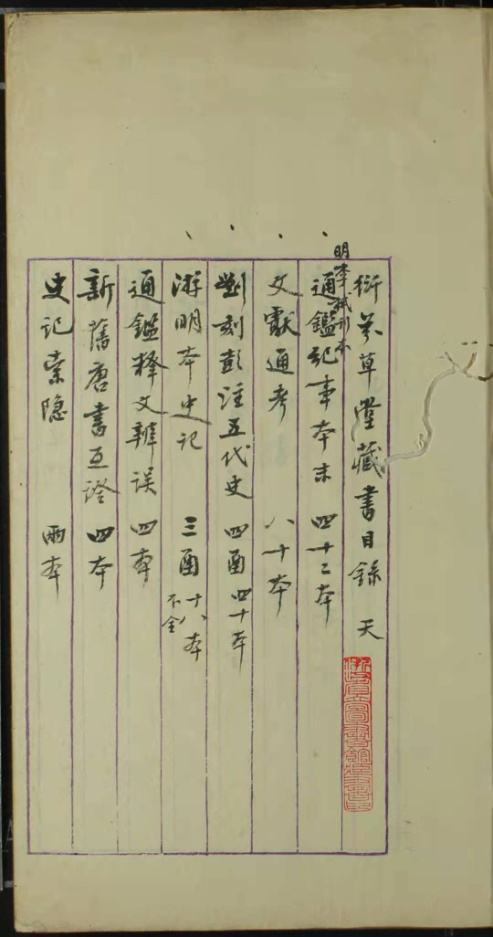 衍芬草堂藏書目錄　天
明李栻刊本
通鑑紀事本末　四十二本
文獻通考　八十本
劉刻彭注五代史　四函　四十本
游明本史記　三函　十八本　不全
通鑑釋文辨誤　四本
新舊唐書互證　四本
史記索隐　兩本